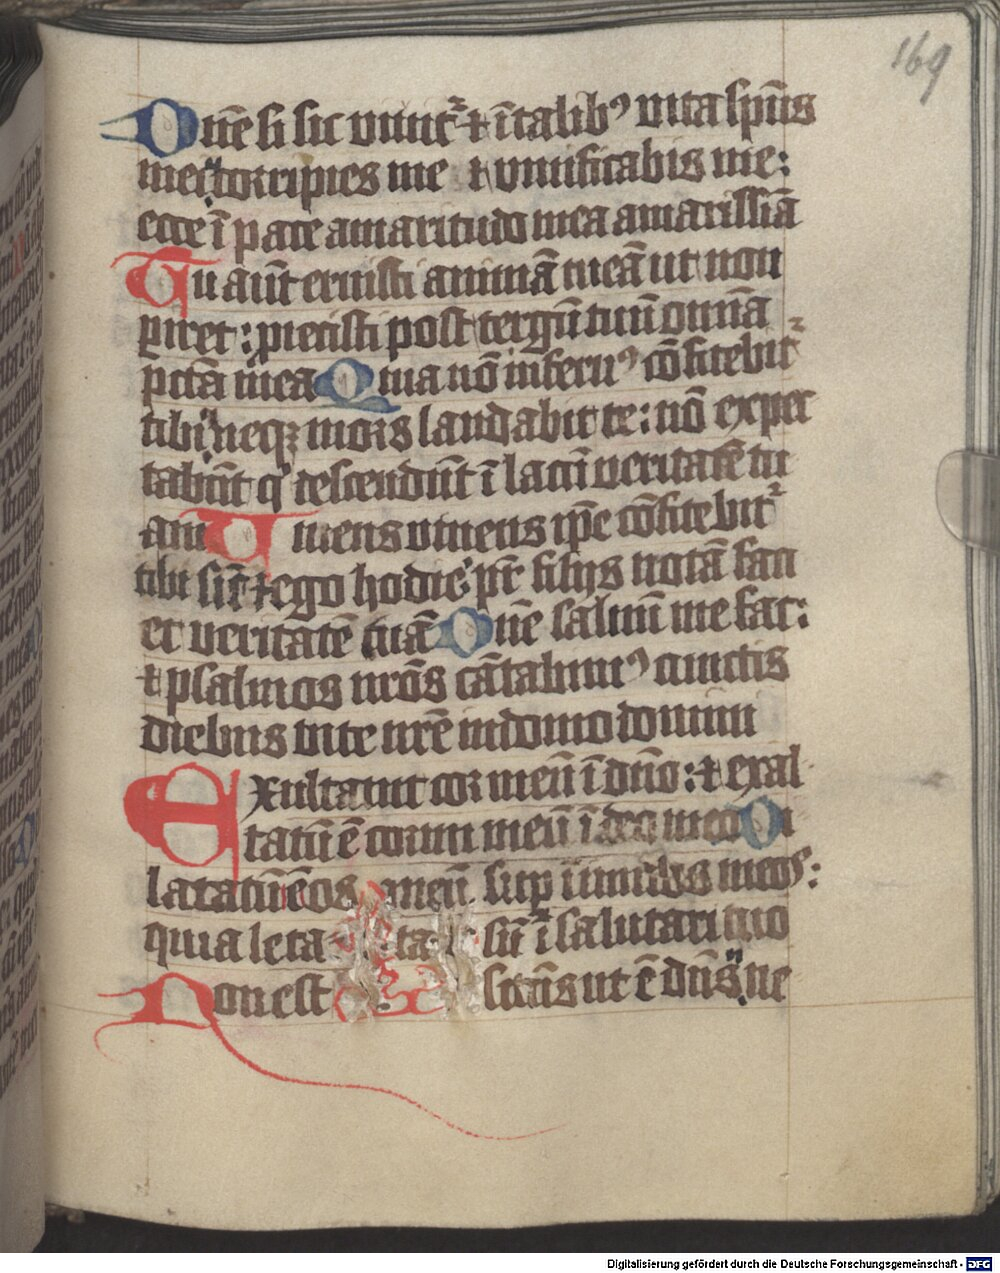 169
Dnē si sic viuit᷑ ⁊ ī talibꝰ vita spūs
mei corripies me ⁊ viuificabis me:
ecce ī pace amaritudo mea amarissīa
Tu aūt eruisti animā meā ut non
piret: piecisti post tergū tuū omnīa
pctā mea Quia nō infernꝰ cōfitebit᷑
tibi neqꝫ mors laudabit te: nō expec
tabūt q descendūt ī lacū veritatē tu
am Viuens viuens ip̄e cōfitebit᷑
tibi sic̄ ⁊ ego hodie pr̄ filijs notā faci
et veritatē tuā Dnē saluū me fac:
⁊ psalmos nr̄os cātabimꝰ cunctis
diebus vite nr̄e in domo domini
Exultauit cor meū ī dn̄o: ⁊ exal
tatū ē cornu meū ī deo meo Di
latatū ē os meū sup inimicos meos:
quia leta ta sū ī salutari tuo
Non est sctūs ut ē dn̄s ne
Digitalisierung gefördert durch die Deutsche Forschungsgemeinschaft - DFG